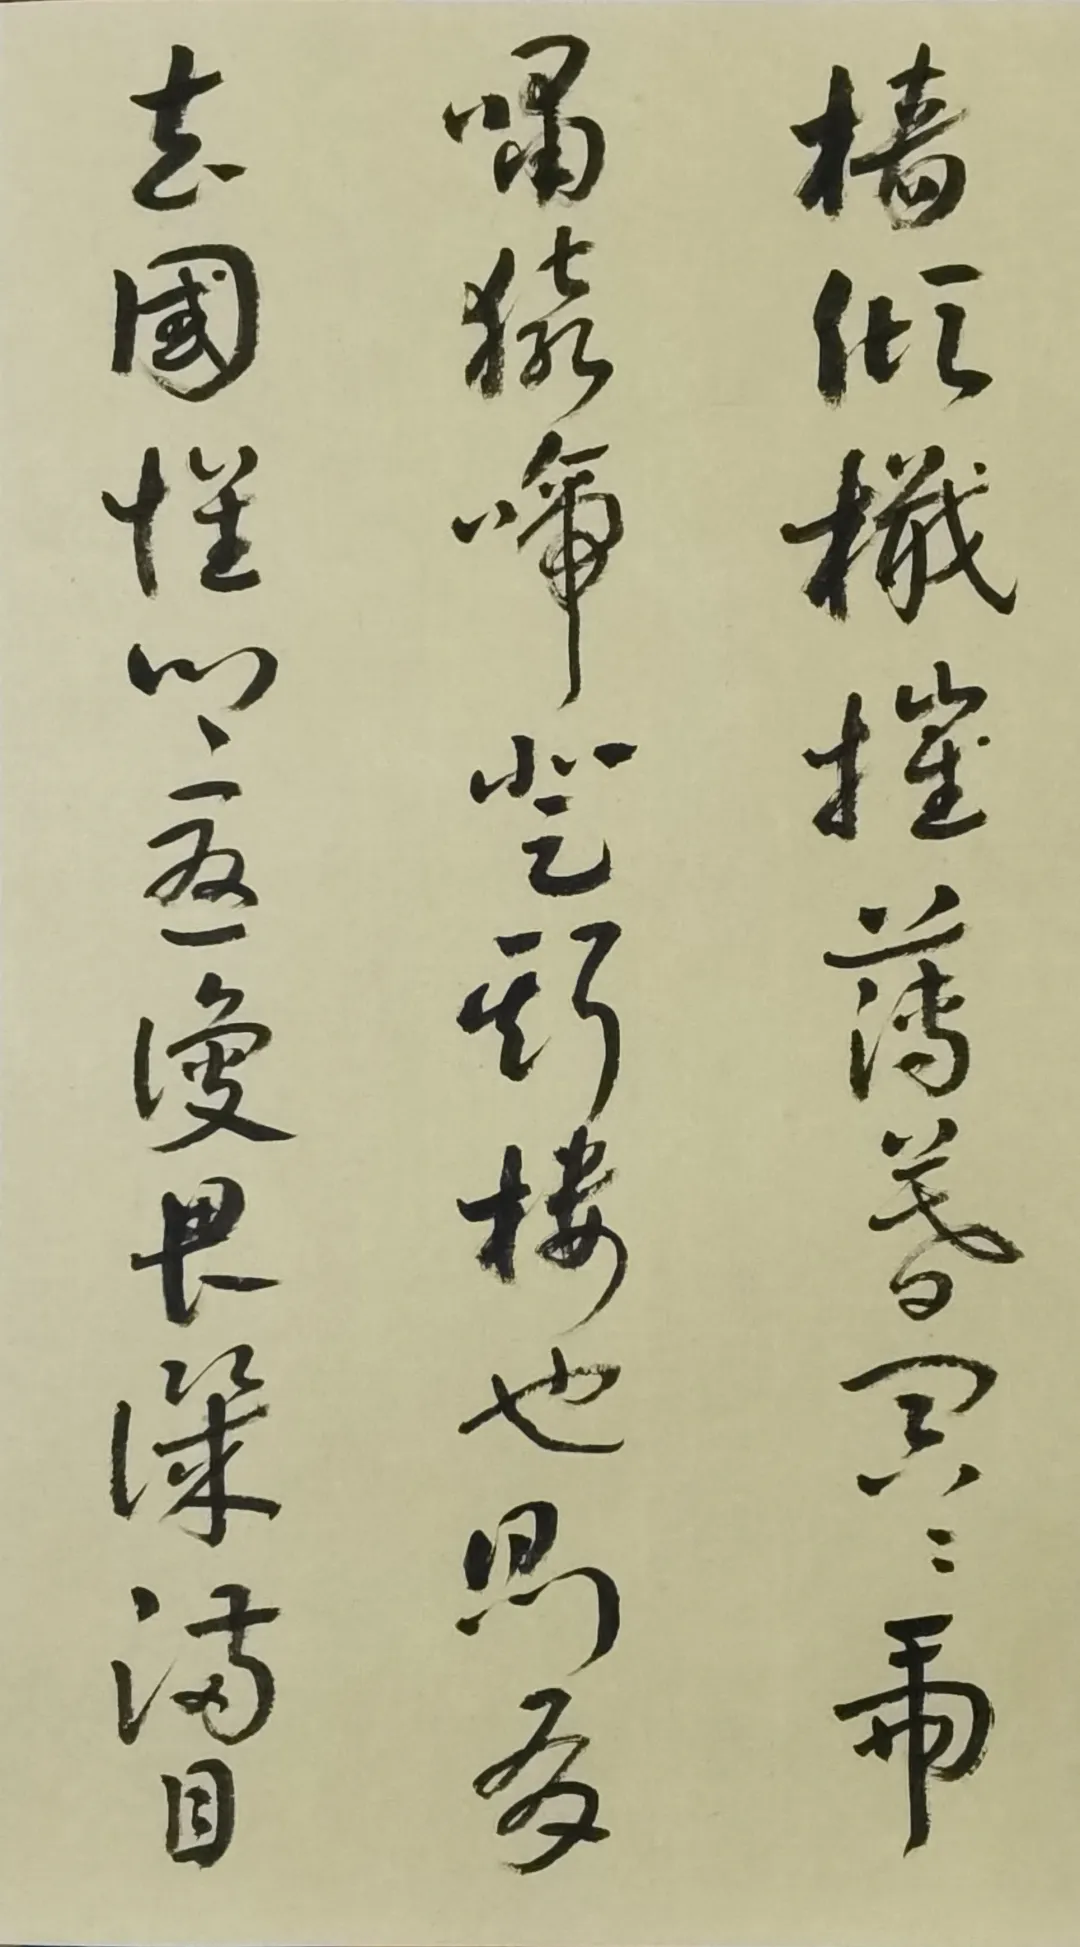 檣傾檝摧薄暮冥〻虎
嘯猿啼登斯樓也則有
去國懷鄉憂讒畏譏滿目